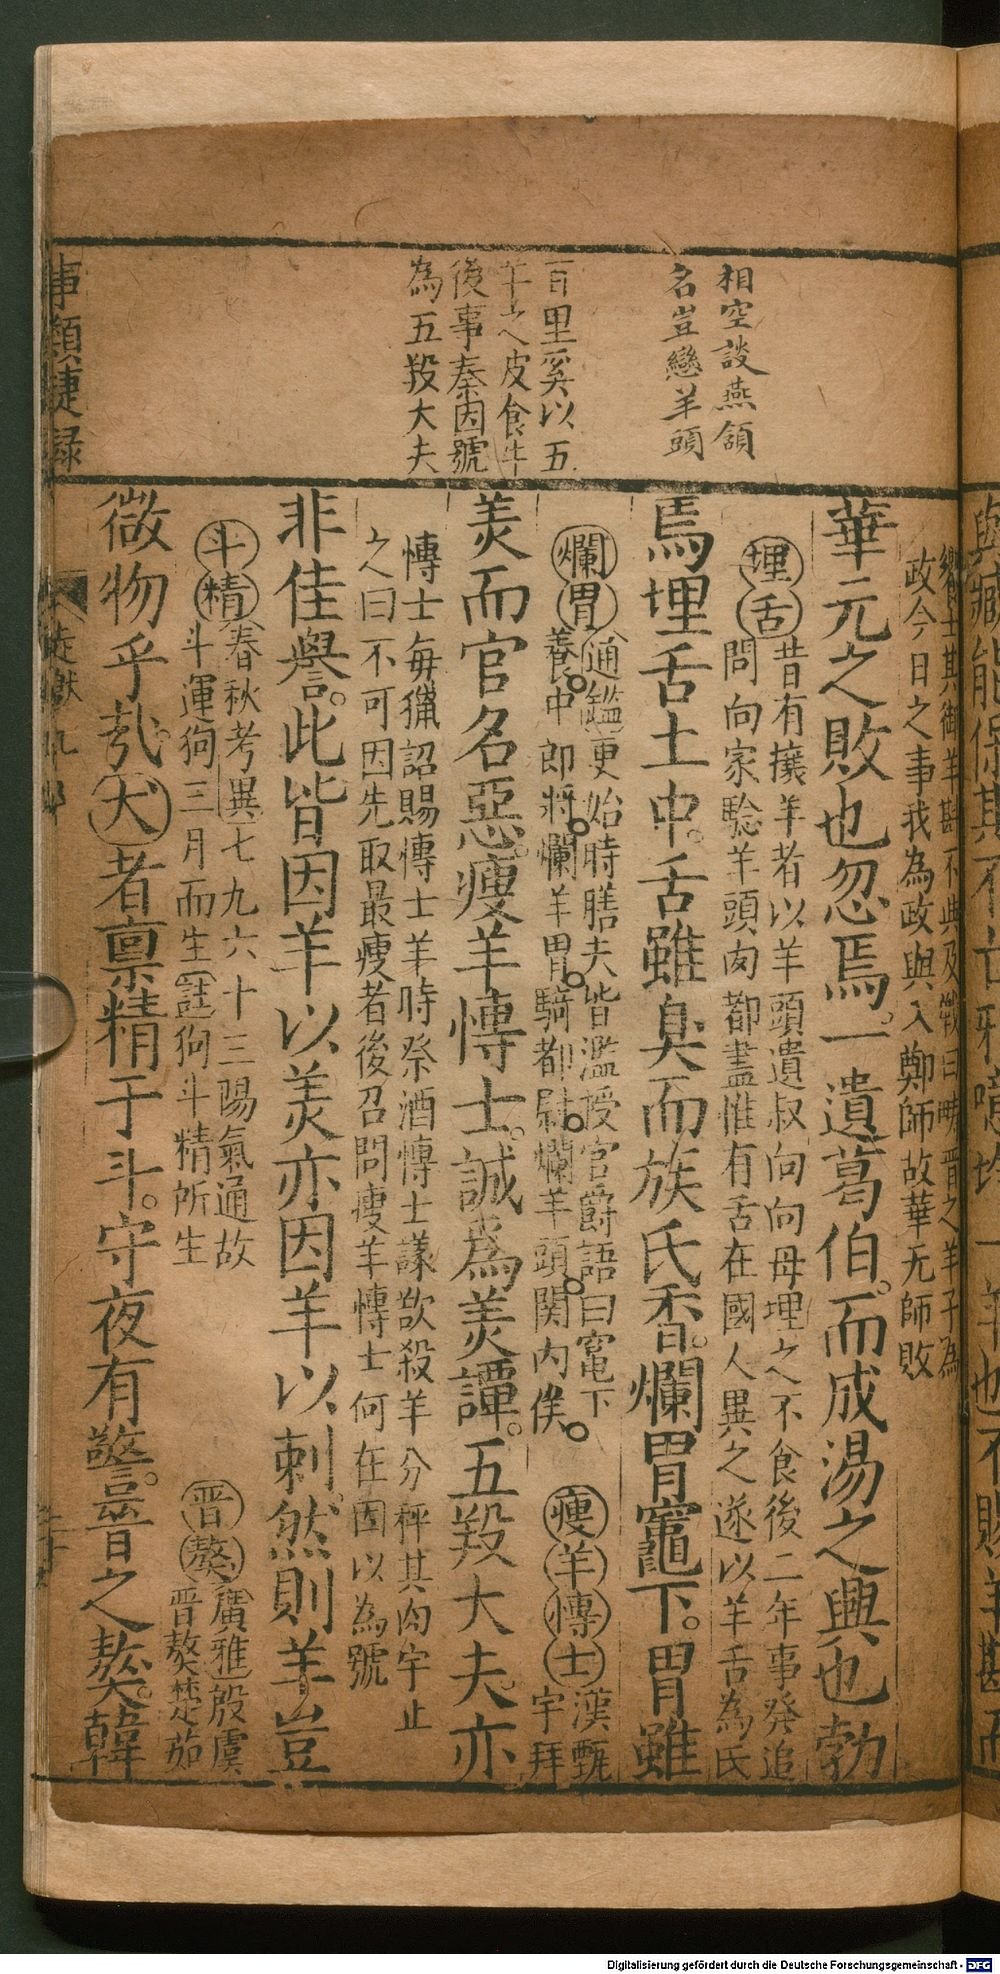 相空談燕頷
名豈戀羊頭
百里奚以五
羊之皮食牛
後事秦因號
為五羖大夫
政今日之事我為政與入鄭師故華元師敗
華元之敗也忽焉。一遺葛伯。而成湯之興也勃
埋舌
昔有攘羊者以羊頭遺叔向向母埋之不食後二年事發追
問向家驗羊頭肉都盡惟有舌在國人異之遂以羊舌為氏
焉埋舌土中。舌雖臭而族氏香。爛胃竈下。胃雖
爛胃
通鑑更始時膳夫皆濫授官爵語曰竃下
養中郎將爛羊胃騎都尉爛羊頭関内侯
瘦羊博士
漢甄
宇拜
羙而官名惡。瘦羊博士。誠爲羙譚。五羖大夫。亦
博士每獵詔賜博士羊時祭酒博士議欲殺羊分秤其肉宇止
之曰不可因先取最瘦者後召問瘦羊博士何在因以為號
非佳譽。此皆因羊以羙亦因羊以刺。然則羊豈
斗精
春秋考異七九六十三陽氣通故
斗運狗三月而生註狗斗精所生
晋獒
廣雅殷虞
晋獒楚茹
微物乎㢤。犬者禀精于斗。守夜有警。晋之獒。韓
事類捷録
Digitalisierung gefördert durch die Deutsche Forschungsgemeinschaft - DFG